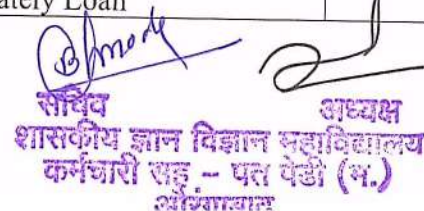 ately Loan
सचिव
अध्यक्ष
शासकीय ज्ञान विज्ञान महाविद्यालय
कर्मचारी सह – पत पेढी (म.)
औरंगाबाद